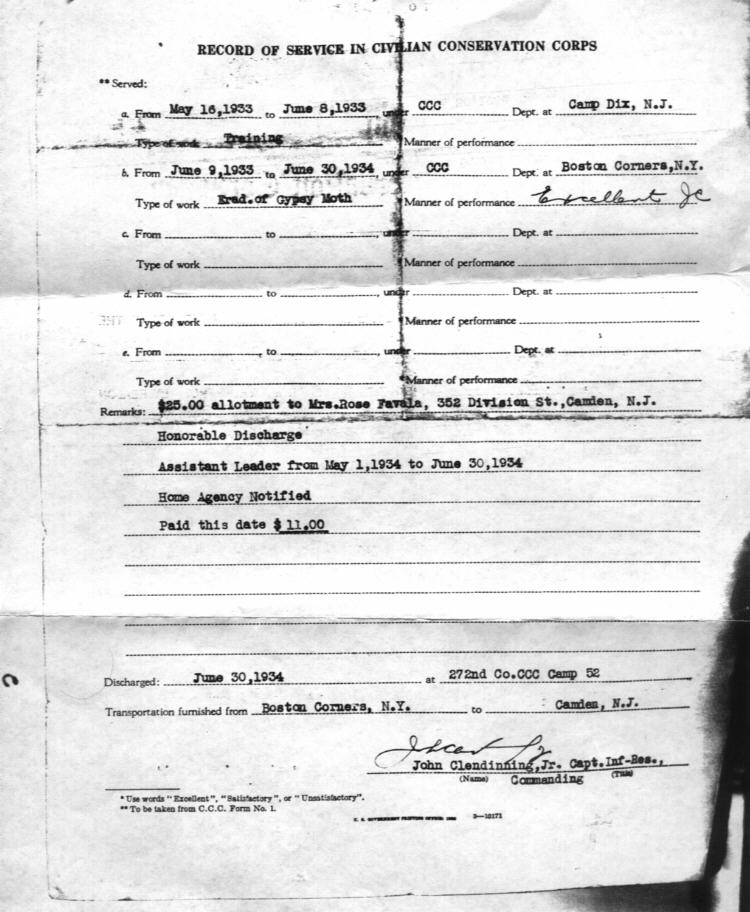 RECORD OF SERVICE IN CIVILIAN CONSERVATION CORPS
** Served:
a. From May 16,1933 to June 8,1933, under CCC Dept. at Camp Dix, N.J.
Type of work Training Manner of performance
b. From June 9,1933 to June 30,1934, under CCC Dept. at Boston Corners,N.Y.
Type of work Erad.of Gypsy Moth Manner of performance Excellent JC
c. From to , under Dept. at
Type of work Manner of performance
d. From to , under Dept. at
Type of work Manner of performance
e. From , to , under Dept. at
Type of work Manner of performance
Remarks: $25.00 allotment to Mrs.Rose Favala, 352 Division St.,Camden, N.J.
Honorable Discharge
Assistant Leader from May 1,1934 to June 30,1934
Home Agency Notified
Paid this date $ 11.00
Discharged: June 30,1934 at 272nd Co.CCC Camp 52
Transportation furnished from Boston Corners, N.Y. to Camden, N.J.
John Clendinning,Jr. Capt.Inf-Res.,
(Name) Commanding (Title)
* Use words "Excellent", "Satisfactory", or "Unsatisfactory".
** To be taken from C.C.C. Form No. 1.
U. S. GOVERNMENT PRINTING OFFICE 3—10171